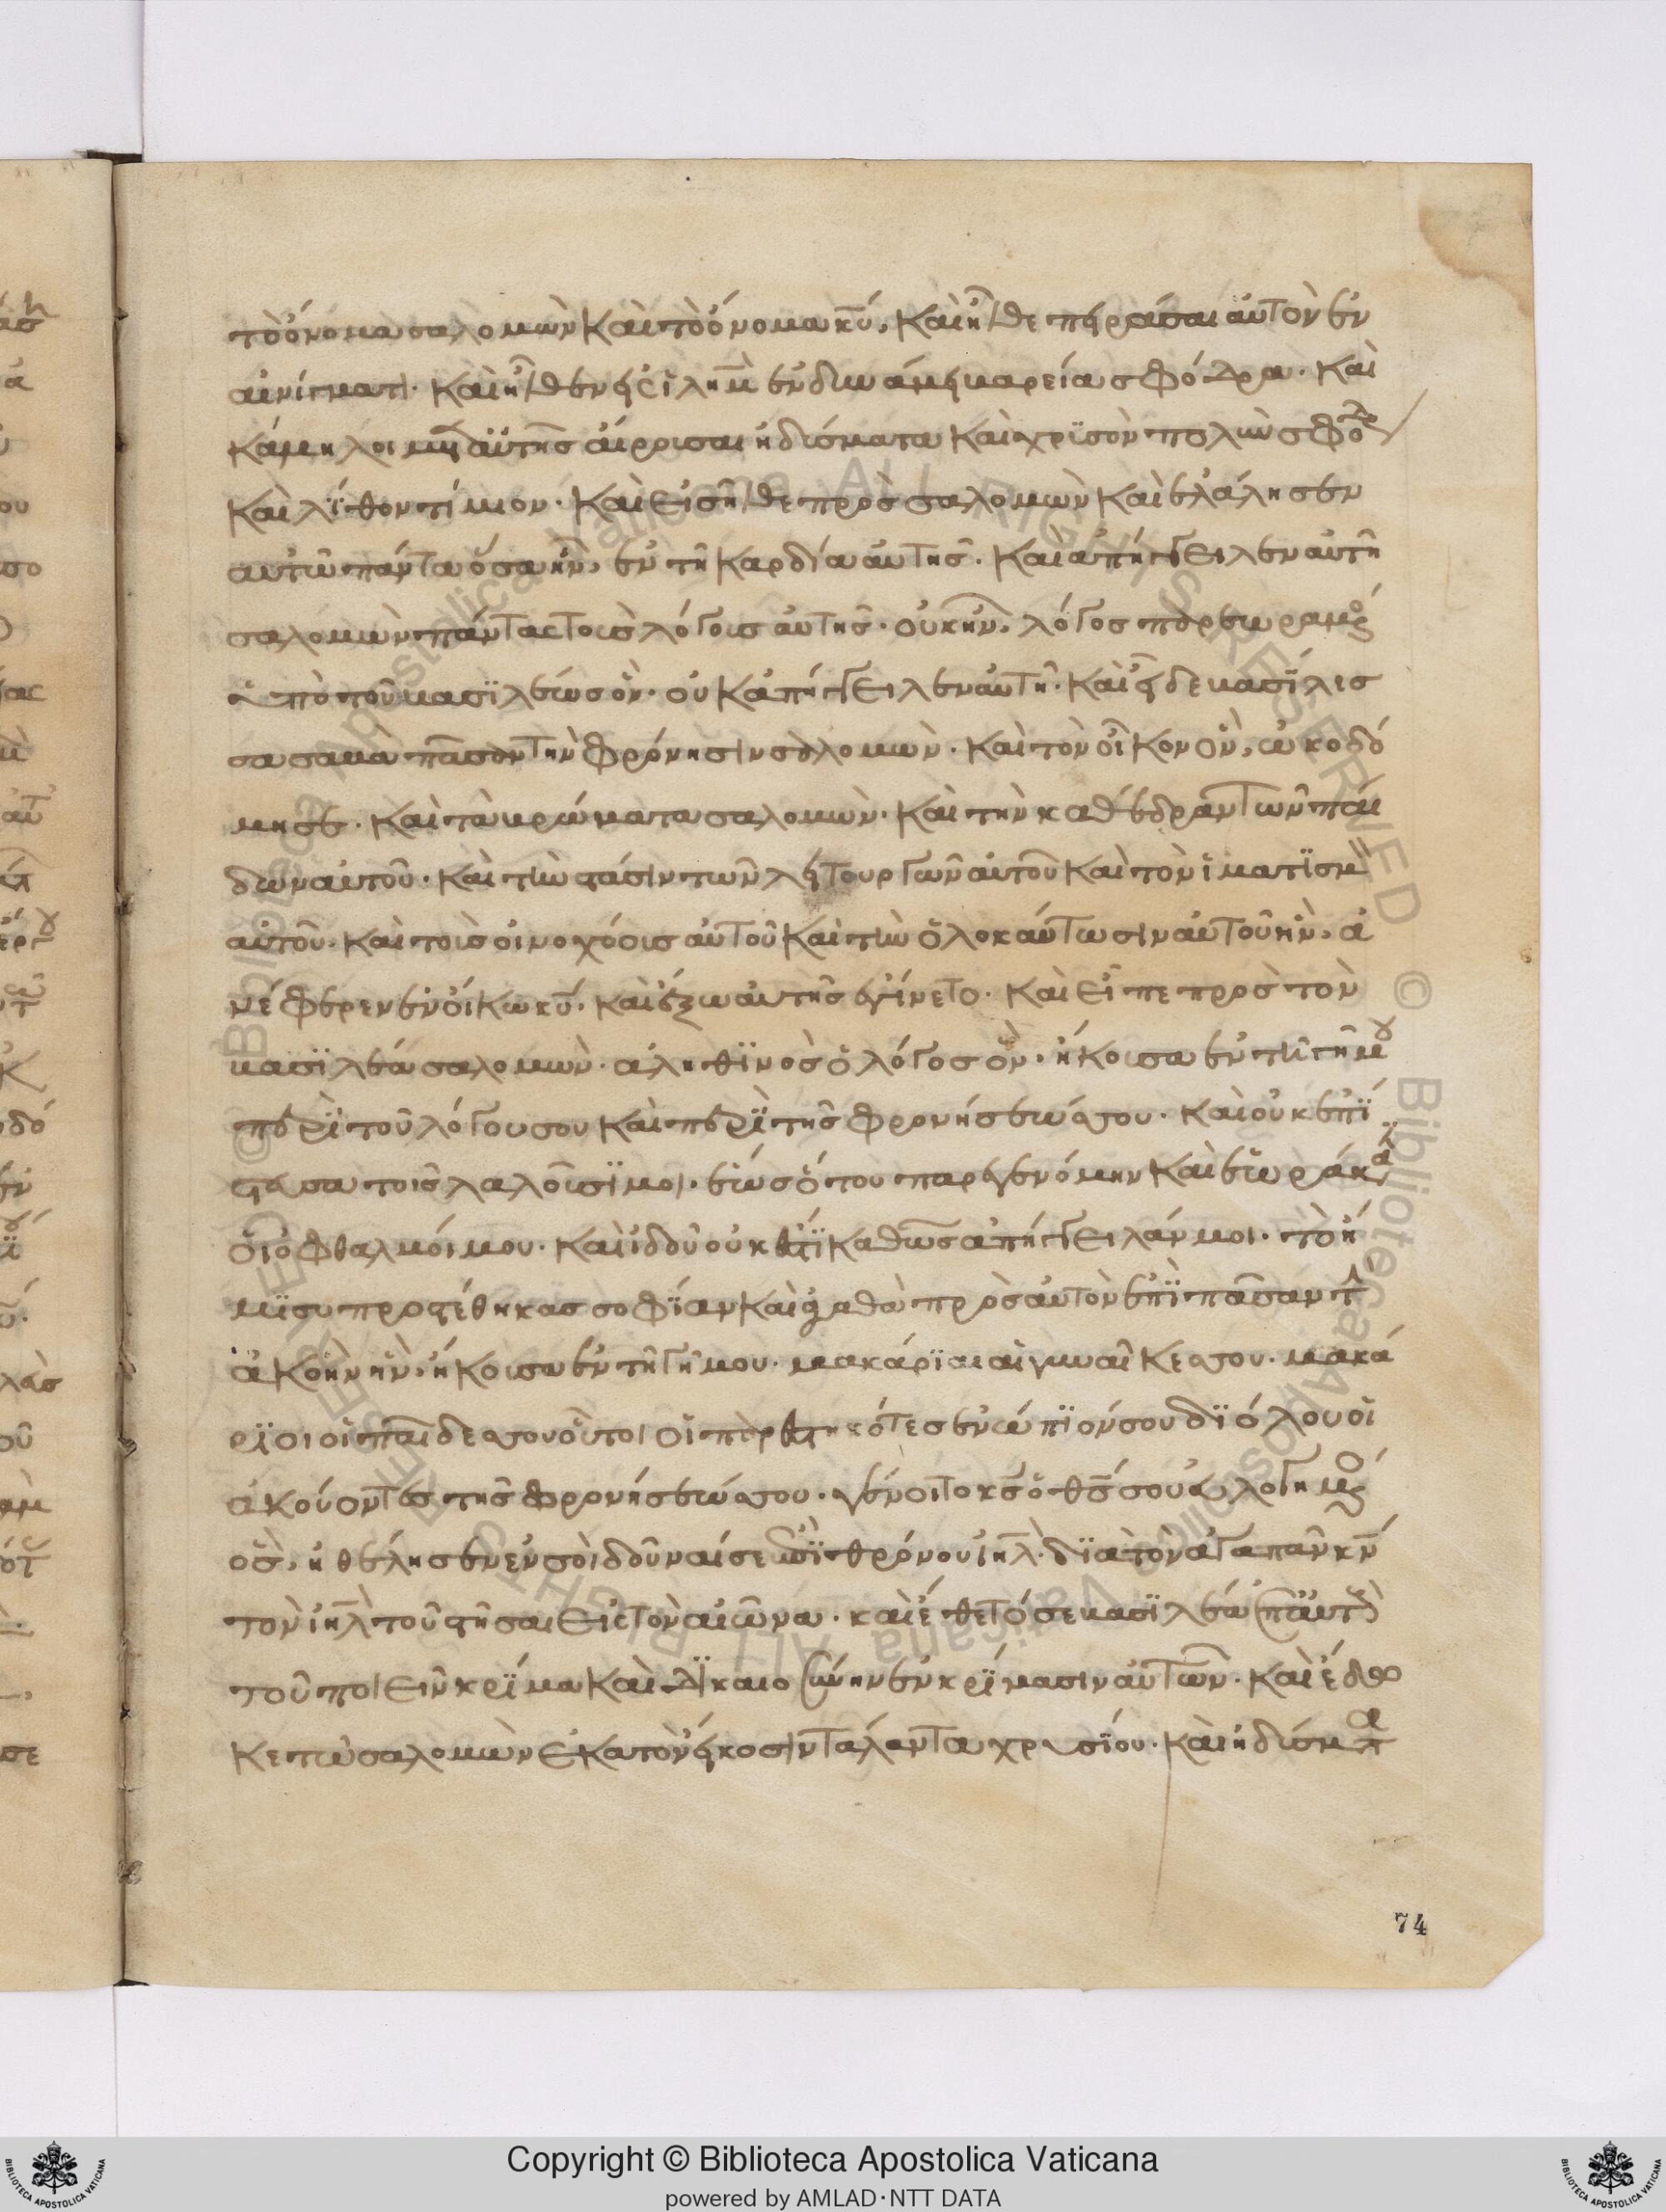 τὸ ὄνομα σαλομὼν καὶ τὸ ὄνομα κ̅υ̅, καὶ ἦλθε πειράσαι αὐτὸν ἐν
αἰνίγματι· καὶ ἦλθεν εἰς ἰλη̅μ̅ ἐν δυνάμει βαρεία σφόδρα· καὶ
κάμηλοι μετ αὐτῆς αἴρουσαι ἡδίσματα καὶ χρϊσὸν πολὺν σφόδρ
καὶ λΐθον τίμιον· καὶ εἰσῆλθε πρὸς σαλομὼν καὶ ἐλάλησεν
αὐτῶ πάντα ὅσα ἦν, ἐν τῆ καρδία αὐτῆς· καὶ ἀπήγγειλεν αὐτῆ
σαλομὼν πάντας τοὺς λόγους αὐτῆς· οὐκ ἦν, λόγος παρεωραμένος
ἀπὸ τοῦ βασϊλέως ὃν· οὐκ ἀπήγγειλεν αὐτῆ· καὶ εἶδε βασΐλισ
σα σαβὰ πᾶσαν τὴν φρόνησιν σολομὼν· καὶ τὸν οἶκον ὃν, ὠκοδό
μησε· καὶ τὰ βρώματα σαλομὼν· καὶ τὴν καθέδραν τῶν παί
δων αὐτοῦ· καὶ τὴν στάσιν τῶν λειτουργῶν αὐτοῦ καὶ τὸν ἱματϊσμὸν
αὐτοῦ· καὶ τοὺς οἰνοχόους αὐτοῦ καὶ τὴν ὁλοκαύτωσιν αὐτοῦ ἣν, ἀ
νέφερεν ἐν οἴκω κ̅υ̅· καὶ ἔξω αὐτῆς ἐγίνετο· καὶ εἶπε πρὸς τὸν
βασϊλέα σαλομὼν· ἀληθϊνὸς ὁ λόγος ὃν· ἤκουσα ἐν τῆ γῆ μου
περὶ τοῦ λόγου σου καὶ περὶ τῆς φρονήσεώς σου· καὶ οὐκ ἐπΐ
στευσα τοῖς λαλοῦσΐ μοι· ἕως ὅτου παρεγενόμην καὶ ἑωράκασϊ
οἱ ὀφθαλμοί μου· καὶ ἰδοὺ οὐκ ἔστϊ καθῶς ἀπήγγειλάν μοι· τὸ ἥ
μϊσυ προστέθηκας σοφΐαν καὶ ἀγαθὰ πρὸς αὐτὸν ἐπῒ πᾶσαν τὴν
ἀκοὴν ἣν, ἤκουσα ἐν τῆ γῆ μου· μακάρϊαι αἱ γυναῖκες σου· μακά
ρϊοι οἱ παῖδες σου οὗτοι οἱ παρεστηκότες ἐνώπϊόν σου δϊόλου οἱ
ἀκούοντες τῆς φρονήσεώς σου· γένοιτο κ̅ς̅ ὁ θ̅ς̅ σου εὐλογημένος
ὃς, ἠθέλησεν ἐν σοὶ δοῦναί σε ἐπῒ θρόνου ἰη̅λ̅· δϊὰ τὸ ἀγαπᾶν κ̅ν̅
τὸν ἰη̅λ̅ τοῦ στῆσαι εἰς τὸν αἰῶνα· καὶ ἔθετό σε βασϊλέα ἐπ αὐτοὺς
τοῦ ποιεῖν κρΐμα καὶ δϊκαιοσύνην ἐν κρΐμασιν αὐτῶν· καὶ ἔδω
κε τῶ σαλομὼν ἑκατὸν εἴκοσιν τάλαντα χρυσΐου· καὶ ἡδίσματα
74
Copyright © Biblioteca Apostolica Vaticana
powered by AMLAD·NTT DATA